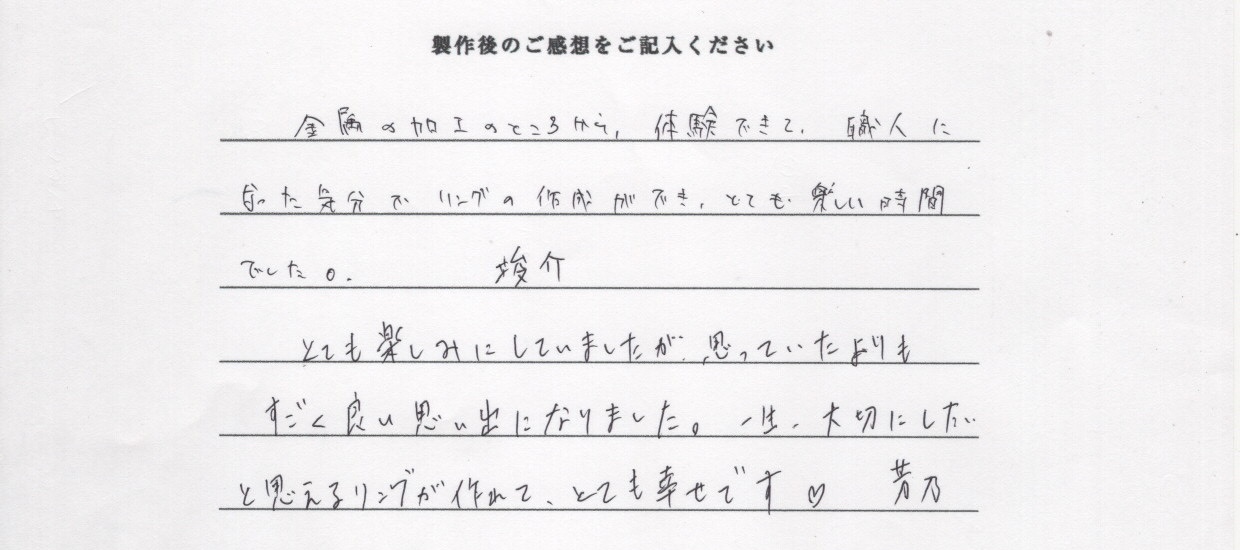 製作後のご感想をご記入ください
金属の加工のところから、体験できて、職人に
なった気分で リングの作成ができ、とても楽しい時間
でした。 峻介
とても楽しみにしていましたが、思っていたよりも
すごく良い思い出になりました。一生、大切にしたい
と思えるリングが作れて、とても幸せです♡ 芳乃